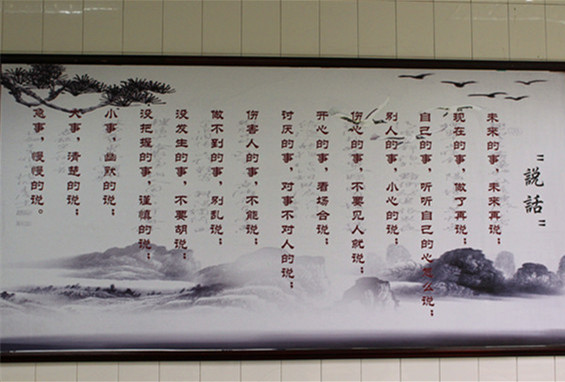 "說話"
未来的事，未来再说；
现在的事，做了再说；
自己的事，听听自己的心怎么说；
别人的事，小心的说；
伤心的事，不要见人就说；
开心的事，看场合说；
讨厌的事，对事不对人的说；
伤害人的事，不能说；
做不到的事，别乱说；
没发生的事，不要胡说；
没把握的事，谨慎的说；
小事，幽默的说；
大事，清楚的说；
急事，慢慢的说。